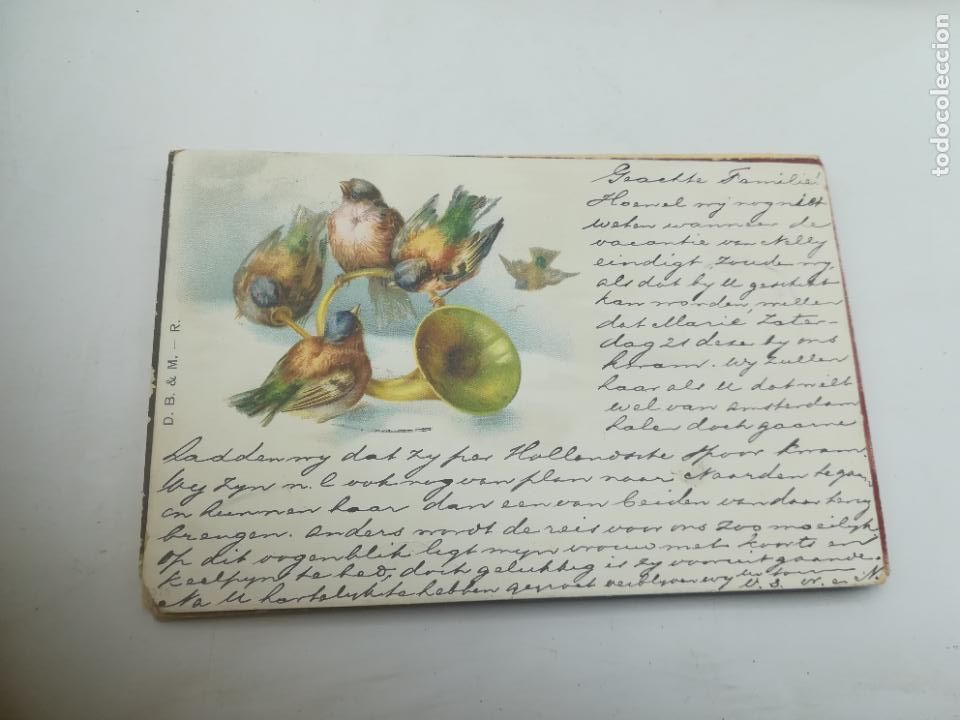 todocoleccion
D. B. & M. – R.
Geachte Familie!
Hoewel wy nog niet
weten wanneer de
vacantie van Nelly
eindigt, zouden wy,
als dat by U geschikt
kan worden, willen
dat Marie, Zater-
dag 21 deze by ons
kwam. Wy zullen
haar als U dat wilt
wel van Amsterdam
halen doch gaarne
hadden wy dat zy per Hollandsche Spoor kwam.
Wy zyn n. l. ook nog van plan naar Naarden te gaan
en kunnen haar dan een van beiden van daar terug
brengen. anders wordt de reis voor ons zoo moeilyk
op dit oogenblik ligt myn vrouw met koorts en
keelpyn te bed, doch gelukkig is zy vooruitgaande.
Na U hartelyk te hebben gegroet verblyven wy